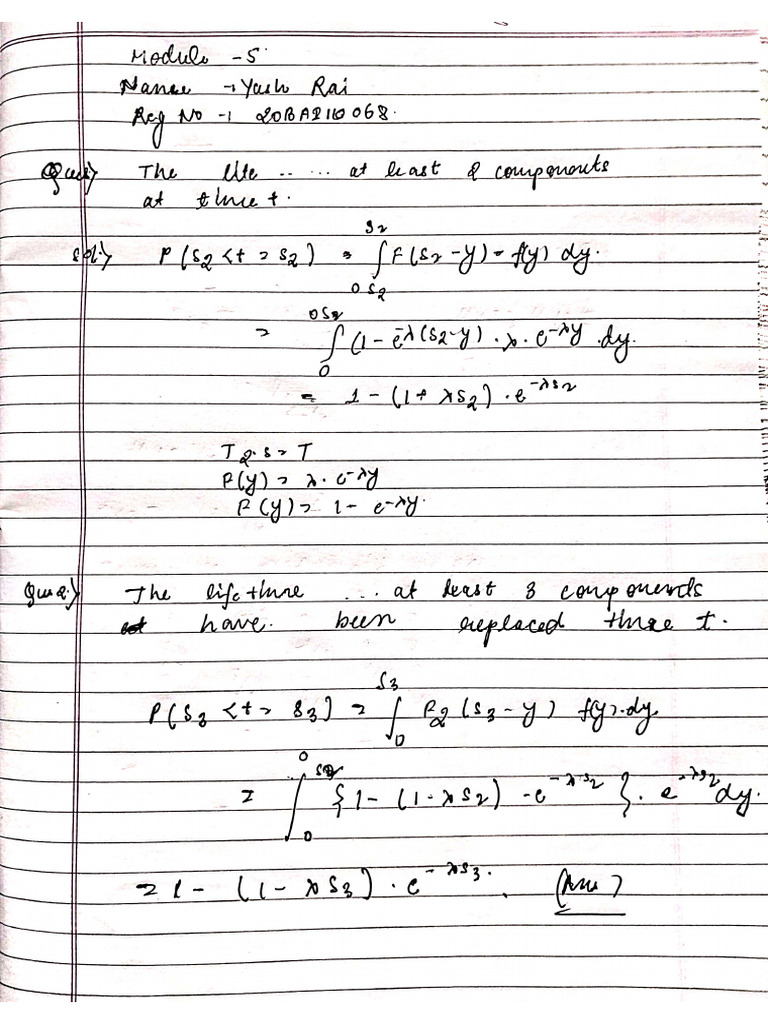 Module - 5
Name → Yash Rai
Reg No → 20BAI10068.
Que1) The life .. ... at least 2 components
at time t.
sol:) P(S₂ < t = S₂) = ∫₀^S₂ F(S₂-y) - f(y) dy.
= ∫₀^S₂ (1 - e^-λ(S₂-y) . λ . e^-λy . dy.
= 1 - (1 + λS₂) . e^-λS₂
T₂.s = T
F(y) = λ . e^-λy
F(y) = 1 - e^-λy.
Que2) The life time ... at least 3 components
have been replaced time t.
P(S₃ < t = S₃) = ∫₀^S₃ F₂(S₃-y) f(y).dy
= ∫₀ {1 - (1-λS₂) - e^-λS₂ } . e^-λS₂ dy.
= 1 - (1 - λS₃) . e^-λS₃. (Ans)